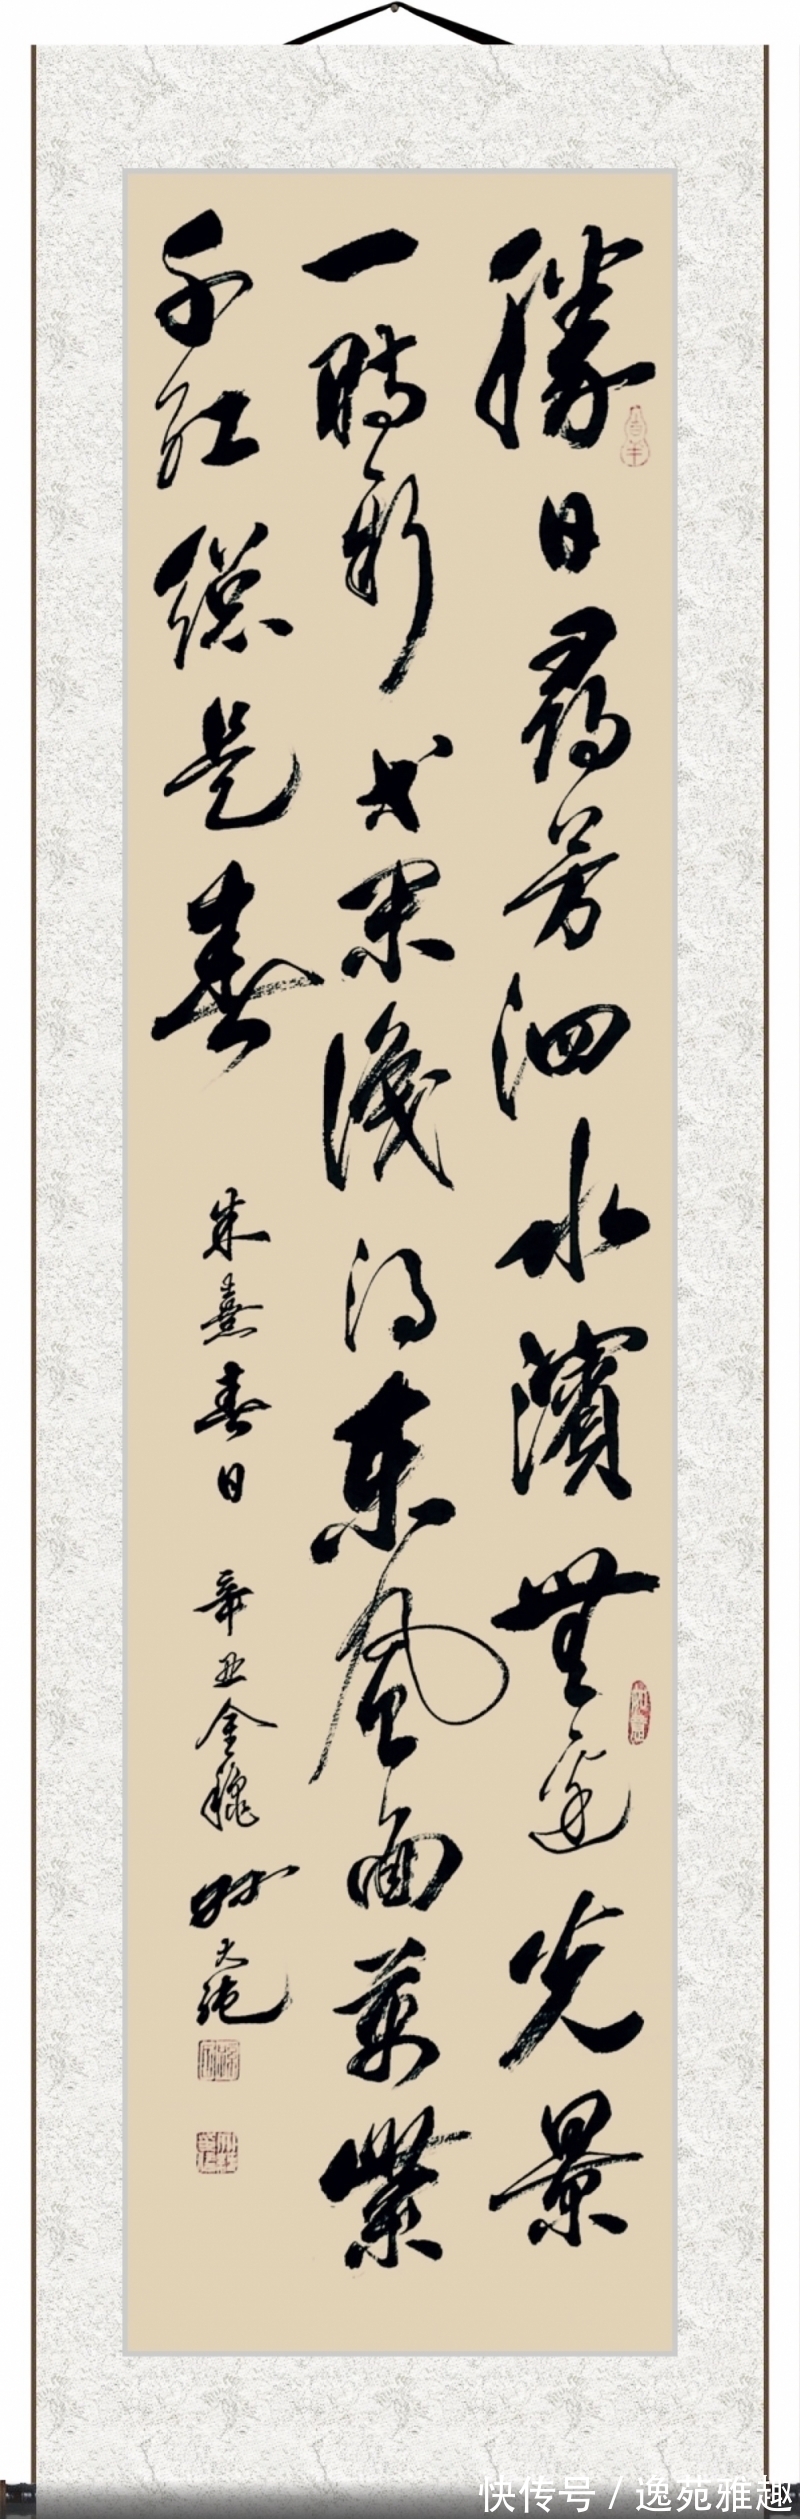 勝日尋芳泗水濱無邊光景
一時新等閑識得東風面萬紫
千紅總是春
朱熹春日 辛丑金穐
快传号 / 逸苑雅趣